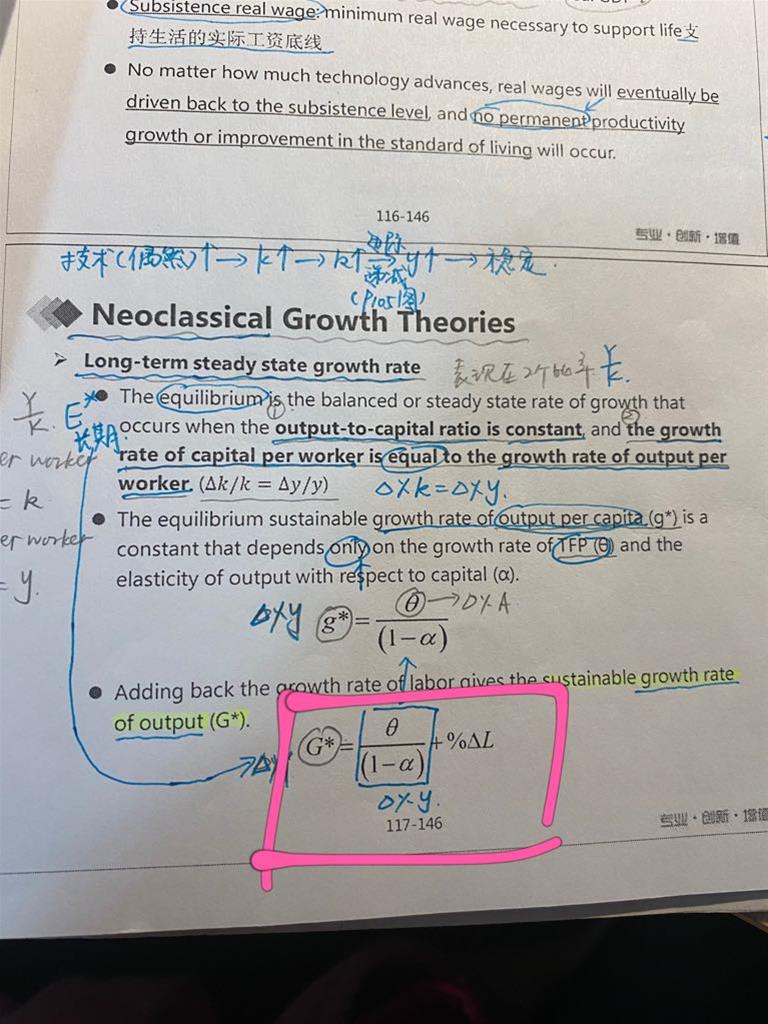 ● Subsistence real wage: minimum real wage necessary to support life支
持生活的实际工资底线
● No matter how much technology advances, real wages will eventually be
driven back to the subsistence level, and no permanent productivity
growth or improvement in the standard of living will occur.
116-146
专业·创新·增值
技术(偶然)↑→k↑→k↑ 边际递减→y↑→稳定.
(P105图)
Neoclassical Growth Theories
➢ Long-term steady state growth rate
表现在2个 Y/K.
● The equilibrium is the balanced or steady state rate of growth that
① ②
Y/K. E 长期
occurs when the output-to-capital ratio is constant, and the growth
er worker
rate of capital per worker is equal to the growth rate of output per
worker. (Δk/k = Δy/y) Δ%k=Δ%y.
= k
● The equilibrium sustainable growth rate of output per capita (g*) is a
er worker
constant that depends only on the growth rate of TFP (θ) and the
= y.
elasticity of output with respect to capital (α).
Δ%y g* = θ/(1−α) →Δ%A
● Adding back the growth rate of labor gives the sustainable growth rate
of output (G*).
G* = θ/(1−α) + %ΔL
Δ%y.
117-146
专业·创新·增值